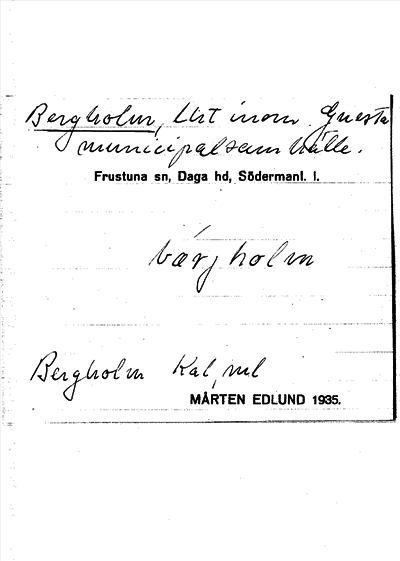 Bergholm, Utt inom Gnesta
municipalsamhälle.
Frustuna sn, Daga hd, Södermanl. l.
bærjholm
Bergholm Kal, ml
MÅRTEN EDLUND 1935.